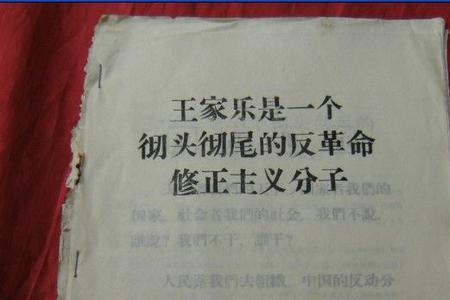 王家乐是一个
彻头彻尾的反革命
修正主义分子
国家，社会者我們的社会，我們不說，
誰說？我們不干，誰干？
人民靠我們去組織，中国的反动分